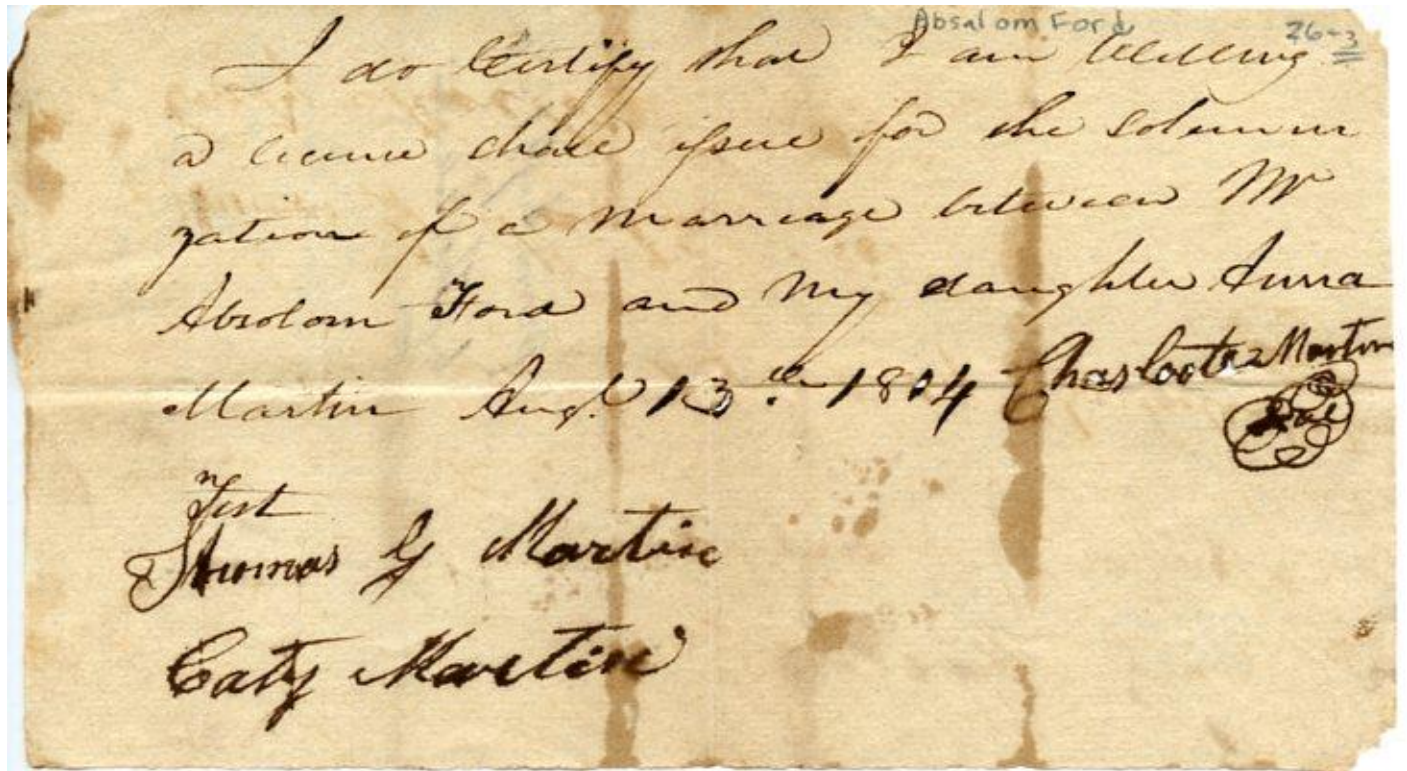 Absalom Ford 26-3
I do Certify that I am willing
a licence shall issue for the solemni
zation of a Marriage between Mr
Absolom Ford and My daughter Anna
Martin Augt. 13th 1814 Charloote Martin
Seal
Test
Thomas G Martin
Caty Martin